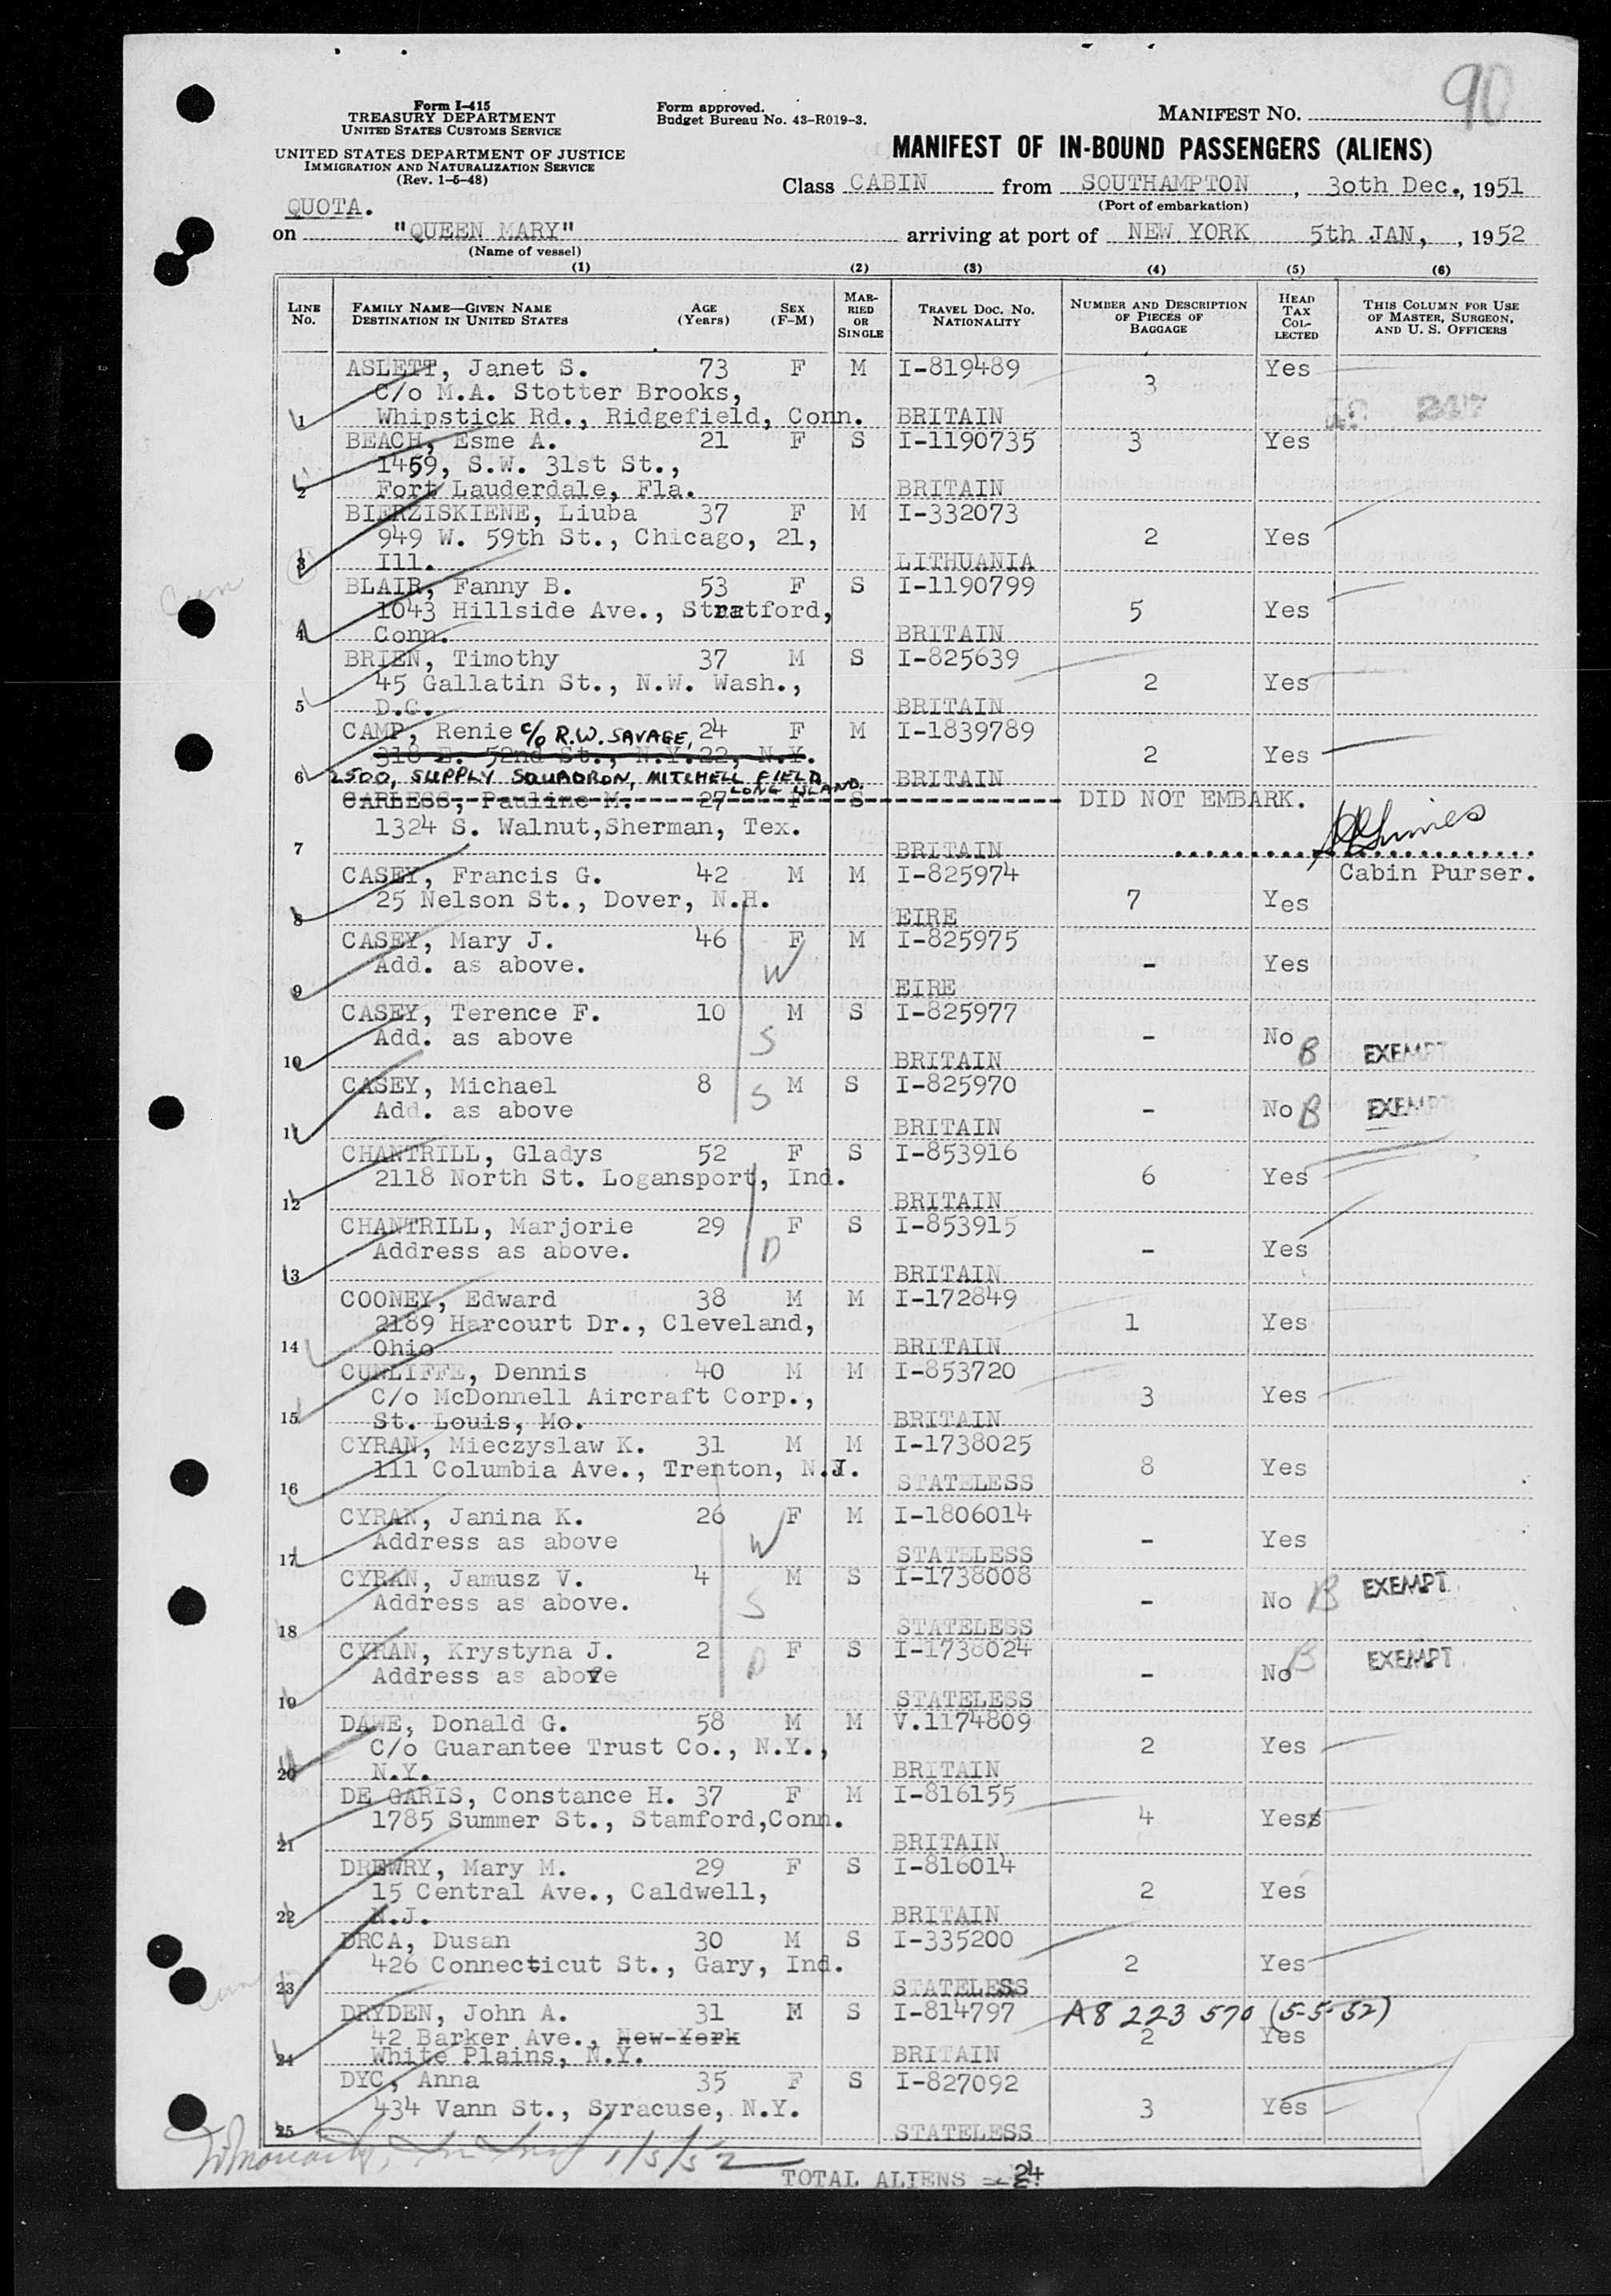 90
Form I-415
TREASURY DEPARTMENT
UNITED STATES CUSTOMS SERVICE
UNITED STATES DEPARTMENT OF JUSTICE
IMMIGRATION AND NATURALIZATION SERVICE
(Rev. 1-5-48)
Form approved.
Budget Bureau No. 43-R019-3.
MANIFEST NO.
MANIFEST OF IN-BOUND PASSENGERS (ALIENS)
Class CABIN from SOUTHAMPTON, 30th Dec., 1951
(Port of embarkation)
QUOTA.
on "QUEEN MARY" arriving at port of NEW YORK 5th JAN, , 1952
(Name of vessel)
(1) (2) (3) (4) (5) (6)
LINE No. FAMILY NAME—GIVEN NAME DESTINATION IN UNITED STATES AGE (Years) SEX (F-M) MARRIED OR SINGLE TRAVEL DOC. NO. NATIONALITY NUMBER AND DESCRIPTION OF PIECES OF BAGGAGE HEAD TAX COLLECTED THIS COLUMN FOR USE OF MASTER, SURGEON, AND U. S. OFFICERS
ASLETT, Janet S. 73 F M I-819489 3 Yes
C/o M.A. Stotter Brooks,
1 Whipstick Rd., Ridgefield, Conn. BRITAIN
BEACH, Esme A. 21 F S I-1190735 3 Yes
1459, S.W. 31st St.,
2 Fort Lauderdale, Fla. BRITAIN
BIERZISKIENE, Liuba 37 F M I-332073
949 W. 59th St., Chicago, 21, 2 Yes
3 Ill. LITHUANIA
BLAIR, Fanny B. 53 F S I-1190799
1043 Hillside Ave., Stratford, 5 Yes
4 Conn. BRITAIN
BRIEN, Timothy 37 M S I-825639
45 Gallatin St., N.W. Wash., 2 Yes
5 D.C. BRITAIN
CAMP, Renie c/o R.W. SAVAGE, 24 F M I-1839789
318 E. 52nd St., N.Y.22, N.Y. 2 Yes
6 2500, SUPPLY SQUADRON, MITCHELL FIELD BRITAIN
LONG ISLAND.
CARLESS, Pauline M. 27 F S DID NOT EMBARK.
1324 S. Walnut,Sherman, Tex.
7 BRITAIN
Cabin Purser.
CASEY, Francis G. 42 M M I-825974
25 Nelson St., Dover, N.H. 7 Yes
8 EIRE
CASEY, Mary J. 46 F M I-825975
Add. as above. W - Yes
9 EIRE
CASEY, Terence F. 10 M S I-825977
Add. as above S - No B EXEMPT
10 BRITAIN
CASEY, Michael 8 M S I-825970
Add. as above S - No B EXEMPT
11 BRITAIN
CHANTRILL, Gladys 52 F S I-853916
2118 North St. Logansport, Ind. 6 Yes
12 BRITAIN
CHANTRILL, Marjorie 29 F S I-853915
Address as above. D - Yes
13 BRITAIN
COONEY, Edward 38 M M I-172849
2189 Harcourt Dr., Cleveland, 1 Yes
14 Ohio BRITAIN
CUNLIFFE, Dennis 40 M M I-853720
C/o McDonnell Aircraft Corp., 3 Yes
15 St. Louis, Mo. BRITAIN
CYRAN, Mieczyslaw K. 31 M M I-1738025
111 Columbia Ave., Trenton, N.J. 8 Yes
16 STATELESS
CYRAN, Janina K. 26 F M I-1806014
Address as above W - Yes
17 STATELESS
CYRAN, Jamusz V. 4 M S I-1738008
Address as above. S - No B EXEMPT
18 STATELESS
CYRAN, Krystyna J. 2 F S I-1738024
Address as above D - No B EXEMPT
19 STATELESS
DAWE, Donald G. 58 M M V.1174809
C/o Guarantee Trust Co., N.Y., 2 Yes
20 N.Y. BRITAIN
DE GARIS, Constance H. 37 F M I-816155
1785 Summer St., Stamford,Conn. 4 Yes
21 BRITAIN
DREWRY, Mary M. 29 F S I-816014
15 Central Ave., Caldwell, 2 Yes
22 N.J. BRITAIN
DRCA, Dusan 30 M S I-335200
426 Connecticut St., Gary, Ind. 2 Yes
23 STATELESS
DRYDEN, John A. 31 M S I-814797 A8 223 570 (5-5-52)
42 Barker Ave., New York 2 Yes
24 White Plains, N.Y. BRITAIN
DYC, Anna 35 F S I-827092
434 Vann St., Syracuse, N.Y. 3 Yes
25 STATELESS
1/5/52
TOTAL ALIENS - 24